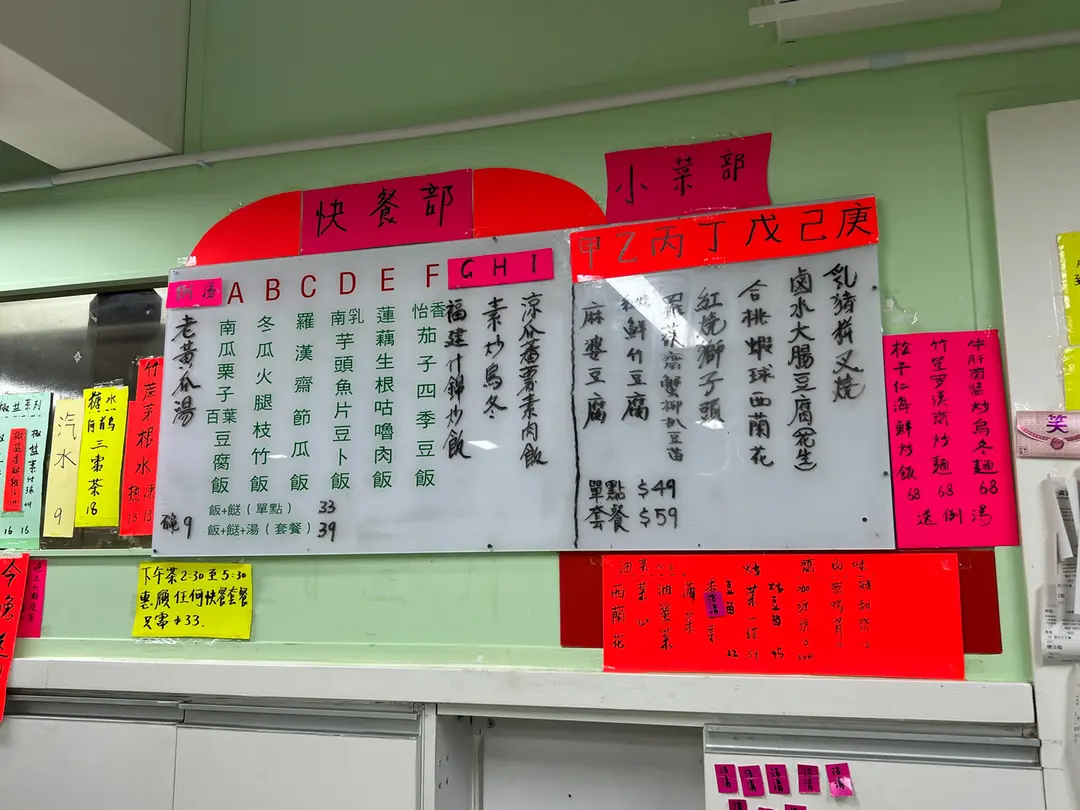 快餐部
小菜部
例湯
老黃瓜湯
碗9
A
南瓜栗子百葉豆腐飯
B
冬瓜火腿枝竹飯
C
羅漢齋節瓜飯
D
南乳芋頭魚片豆卜飯
E
蓮藕生根咕嚕肉飯
F
怡香茄子四季豆飯
G
福建什錦炒飯
H
素炒烏冬
I
涼瓜蕃薯素肉飯
飯+餸(單點) 33
飯+餸+湯(套餐) 39
甲
麻婆豆腐
乙
鮮竹豆腐
丙
羅漢齋蟹柳扒豆苗
丁
紅燒獅子頭
戊
合桃蝦球西蘭花
己
鹵水大腸豆腐(花生)
庚
乳豬拼叉燒
單點 $49
套餐 $59
牛肝菌醬炒烏冬麵 68
竹笙罗漢齋炒麵 68
松子仁海鮮炒飯 68
送例湯
竹蔗茅根水
热 13
凍 13
汽水 9
棗茶 18
椒盐系列
16 16
下午茶2:30至5:30
惠顧任何快餐套餐
只需$33.
今晚
西蘭花
菜心
油麥菜
豆苗
22
45
笑